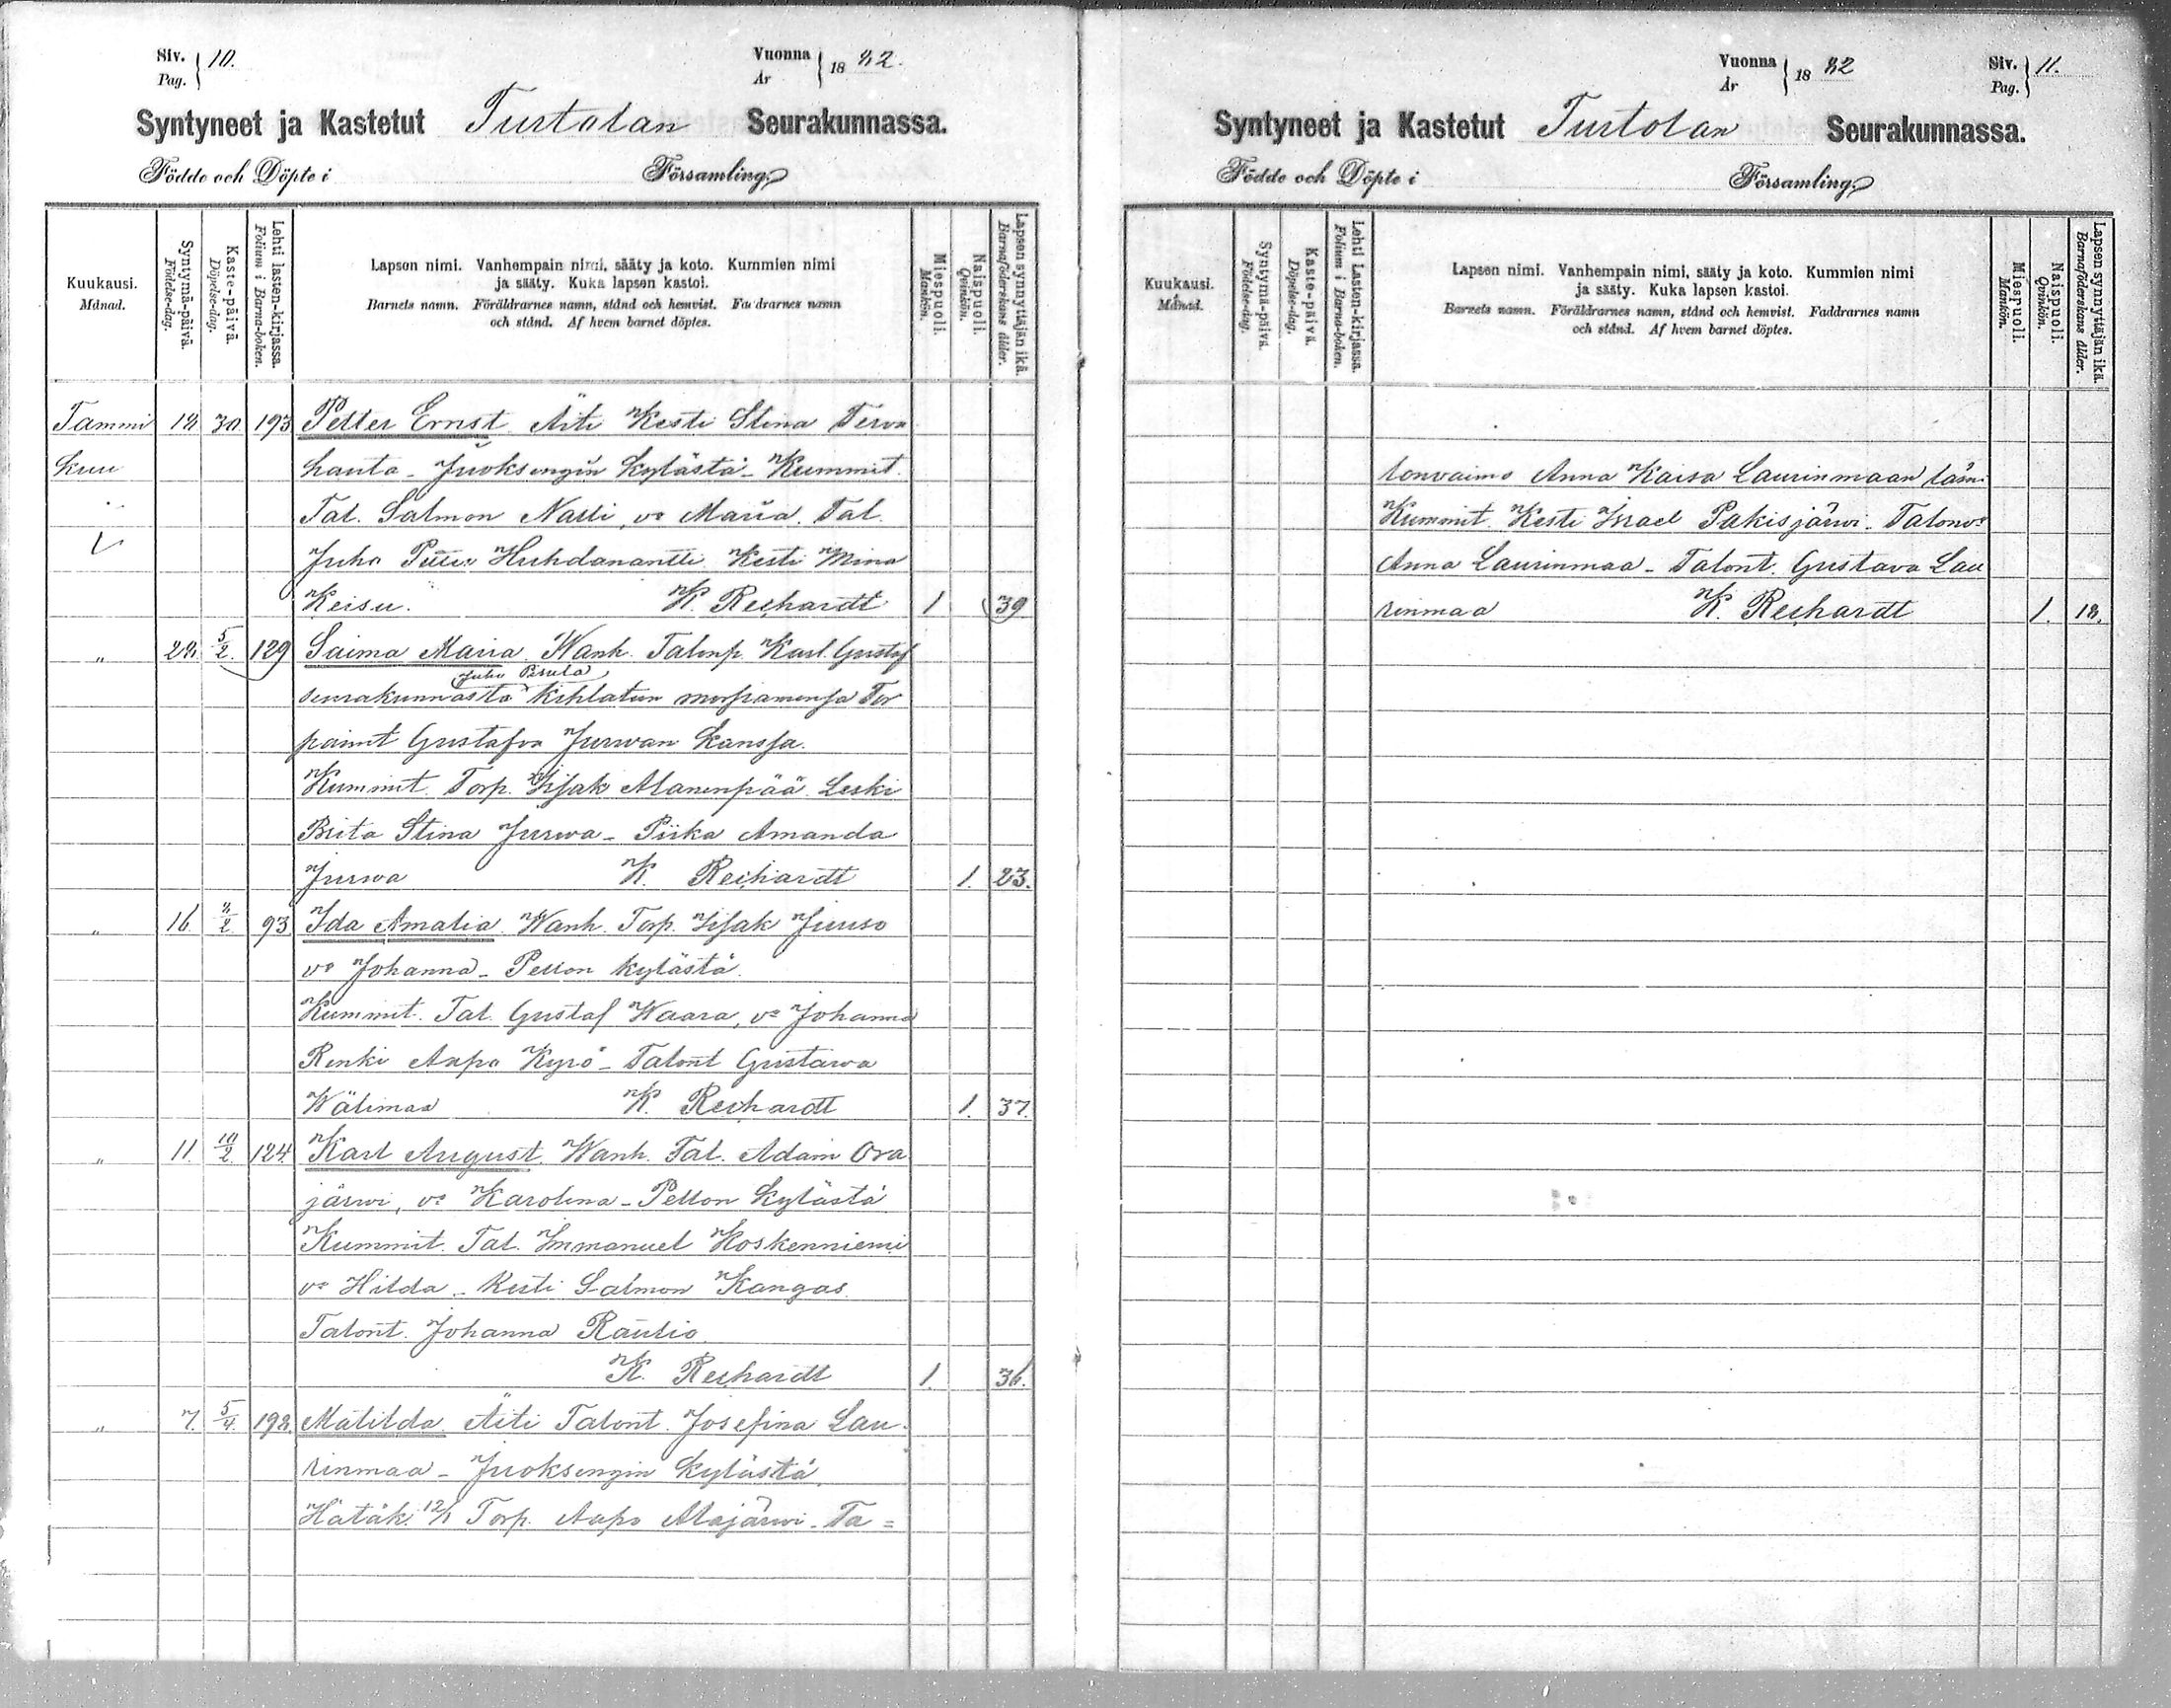 Siv. Pag. 10.
Vuonna År 1882.
Syntyneet ja Kastetut Turtolan Seurakunnassa.
Födde och Döpte i Församling.
Kuukausi. Månad.
Syntymä-päivä. Födelse-dag.
Kaste-päivä. Döpelse-dag.
Lehti lasten-kirjassa. Folium i Barna-boken.
Lapsen nimi. Vanhempain nimi, sääty ja koto. Kummien nimi
ja sääty. Kuka lapsen kastoi.
Barnets namn. Föräldrarnes namn, stånd och hemvist. Faddrarnes namn
och stånd. Af hvem barnet döptes.
Miespuoli. Mankön.
Naispuoli. Qvinkön.
Lapsen synnyttäjän ikä. Barnaföderskans ålder.
Tammi 18 30 193 Petter Ernst. Äiti Kesti Stina Terva
kuu hauta - Juoksengin kylästä - Kummit.
Tal. Salmon Nalli, vo Maria. Tal.
Juho Petter Huhdanantti Kesti Mina
Keisu. K. Rechardt 1 39
" 28 5/2 129 Saima Maria Wanh. Talonp. Karl Gustaf
Juho Pirula
seurakunnasta kihlatun morsiamensa Tor
parint Gustafva Jurwan kanssa.
Kummit. Torp. Iisak Alanenpää. Leski
Brita Stina Jurwa - Piika Amanda
Jurwa K. Rechardt 1. 23.
" 16 8/2 93 Ida Amalia. Wanh. Torp. Iisak Juuso
vo Johanna - Pellon kylästä.
Kummit. Tal. Gustaf Waara, vo Johanna
Renki Aapo Kyrö - Talont Gustawa
Wälimaa K. Rechardt 1. 37.
" 11. 10/2 124 Karl August. Wanh. Tal. Adam Ora
järwi, vo Karolina - Pellon kylästä
Kummit. Tal. Immanuel Koskenniemi
vo Hilda - Kesti Salmon Kangas.
Talont. Johanna Rautio
K. Rechardt 1. 36.
" 7. 5/4. 198. Matilda. Äiti Talont. Josefina Lau
rinmaa - Juoksengin kylästä.
Hätäk. 12/1 Torp. Aapo Alajärwi - Ta=
Vuonna År 1882
Siv. Pag. 11.
Syntyneet ja Kastetut Turtolan Seurakunnassa.
Födde och Döpte i Församling.
Kuukausi. Månad.
Syntymä-päivä. Födelse-dag.
Kaste-päivä. Döpelse-dag.
Lehti Lasten-kirjassa. Folium i Barna-boken.
Lapsen nimi. Vanhempain nimi, sääty ja koto. Kummien nimi
ja sääty. Kuka lapsen kastoi.
Barnets namn. Föräldrarnes namn, stånd och hemvist. Faddrarnes namn
och stånd. Af hvem barnet döptes.
Miespuoli. Mankön.
Naispuoli. Qvinkön.
Lapsen synnyttäjän ikä. Barnaföderskans ålder.
lonvaimo Anna Kaisa Laurinmaan läsn.
Kummit. Kesti Israel Pakisjärwi - Talonvo
Anna Laurinmaa - Talont. Gustava Lau
rinmaa K. Rechardt 1. 18.